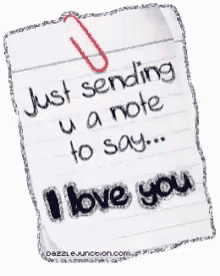 Just sending
u a note
to say...
I love you
DazzleJunction.com